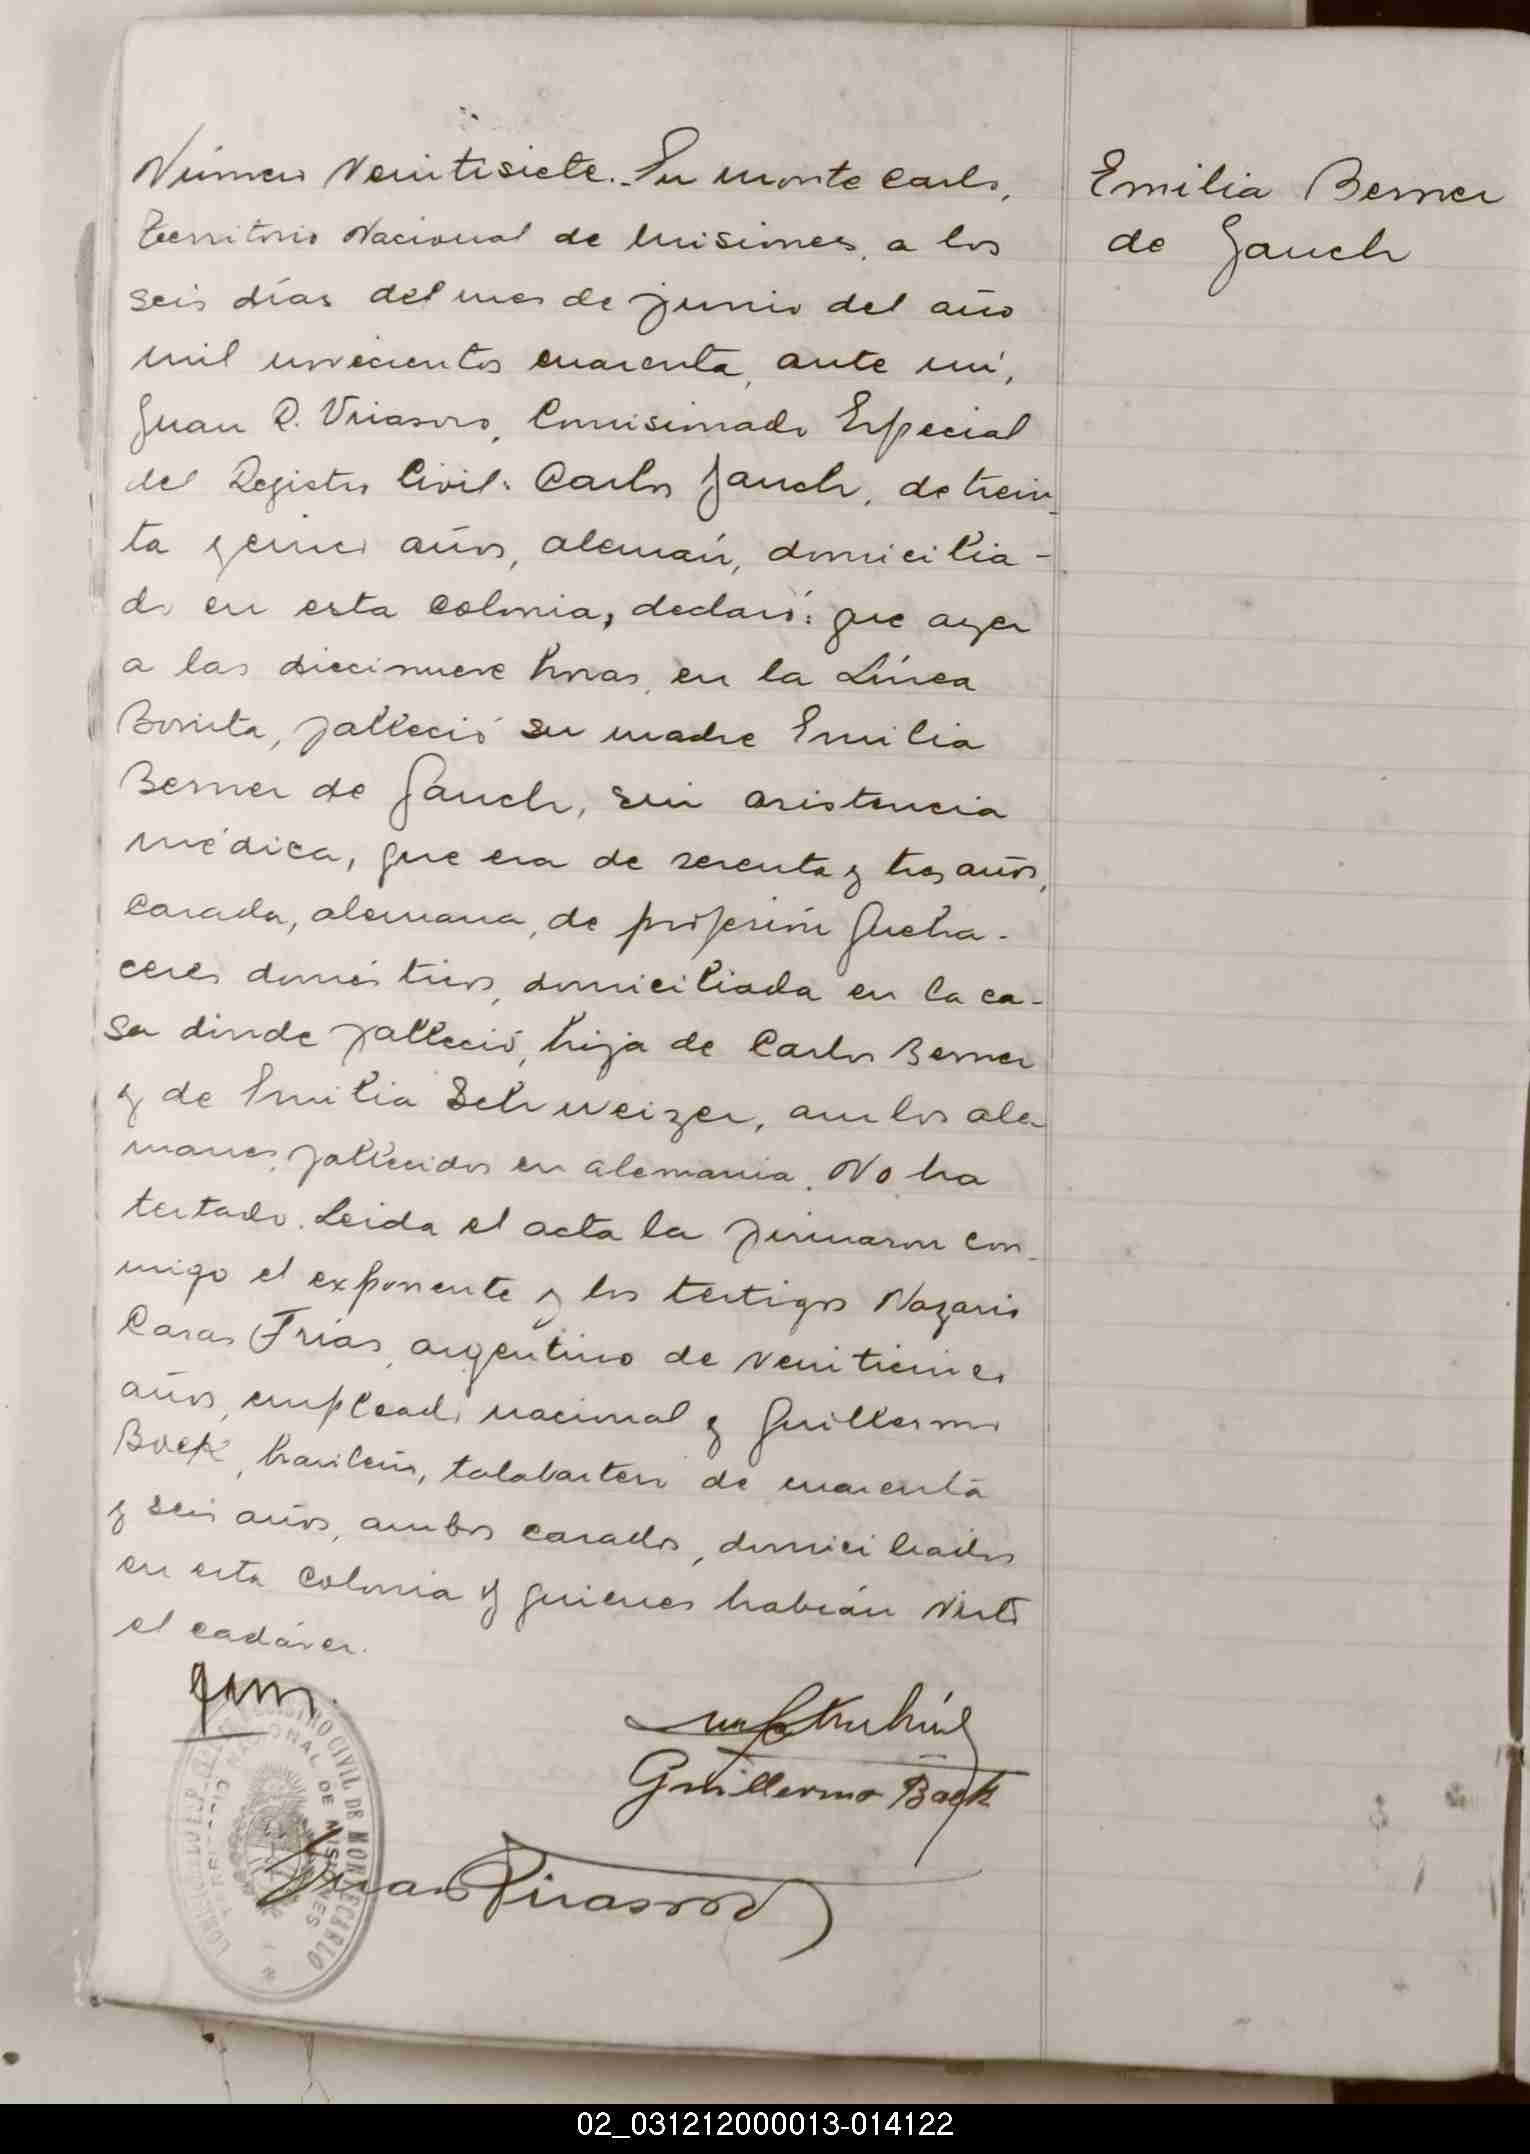 Número Veintisiete. En monte Carlo,
Territorio Nacional de Misiones, a los
seis días del mes de junio del año
mil novecientos cuarenta, ante mí,
Juan R. Virasoro, Comisionado Especial
del Registro Civil: Carlos Jauch, de trein_
ta y cinco años, alemán, domicilia-
do en esta colonia, declaró: que ayer
a las diecinueve horas, en la Línea
Bonita, falleció su madre Emilia
Berner de Jauch, sin asistencia
médica, que era de setenta y tres años,
casada, alemana, de profesión queha-
ceres domésticos, domiciliada en la ca-
sa dinde falleció, hija de Carlos Berner
y de Emilia Schweizer, ambos ale
manes, fallecidos en alemania. No ha
testado. Leida el acta la firmaron con_
migo el exponente y los testigos Nazario
Casas Frías, argentino de veinticinco
años, empleado nacional y Guillermo
Bock, brasileño, talabartero de cuarenta
y seis años, ambos casados, domiciliados
en esta colonia y quienes habián visto
el cadáver.
Emilia Berner
de Jauch
Guillermo Bock
Juan Virasoro
REGISTRO CIVIL DE MONTECARLO
TERRITORIO NACIONAL DE MISIONES
02_031212000013-014122